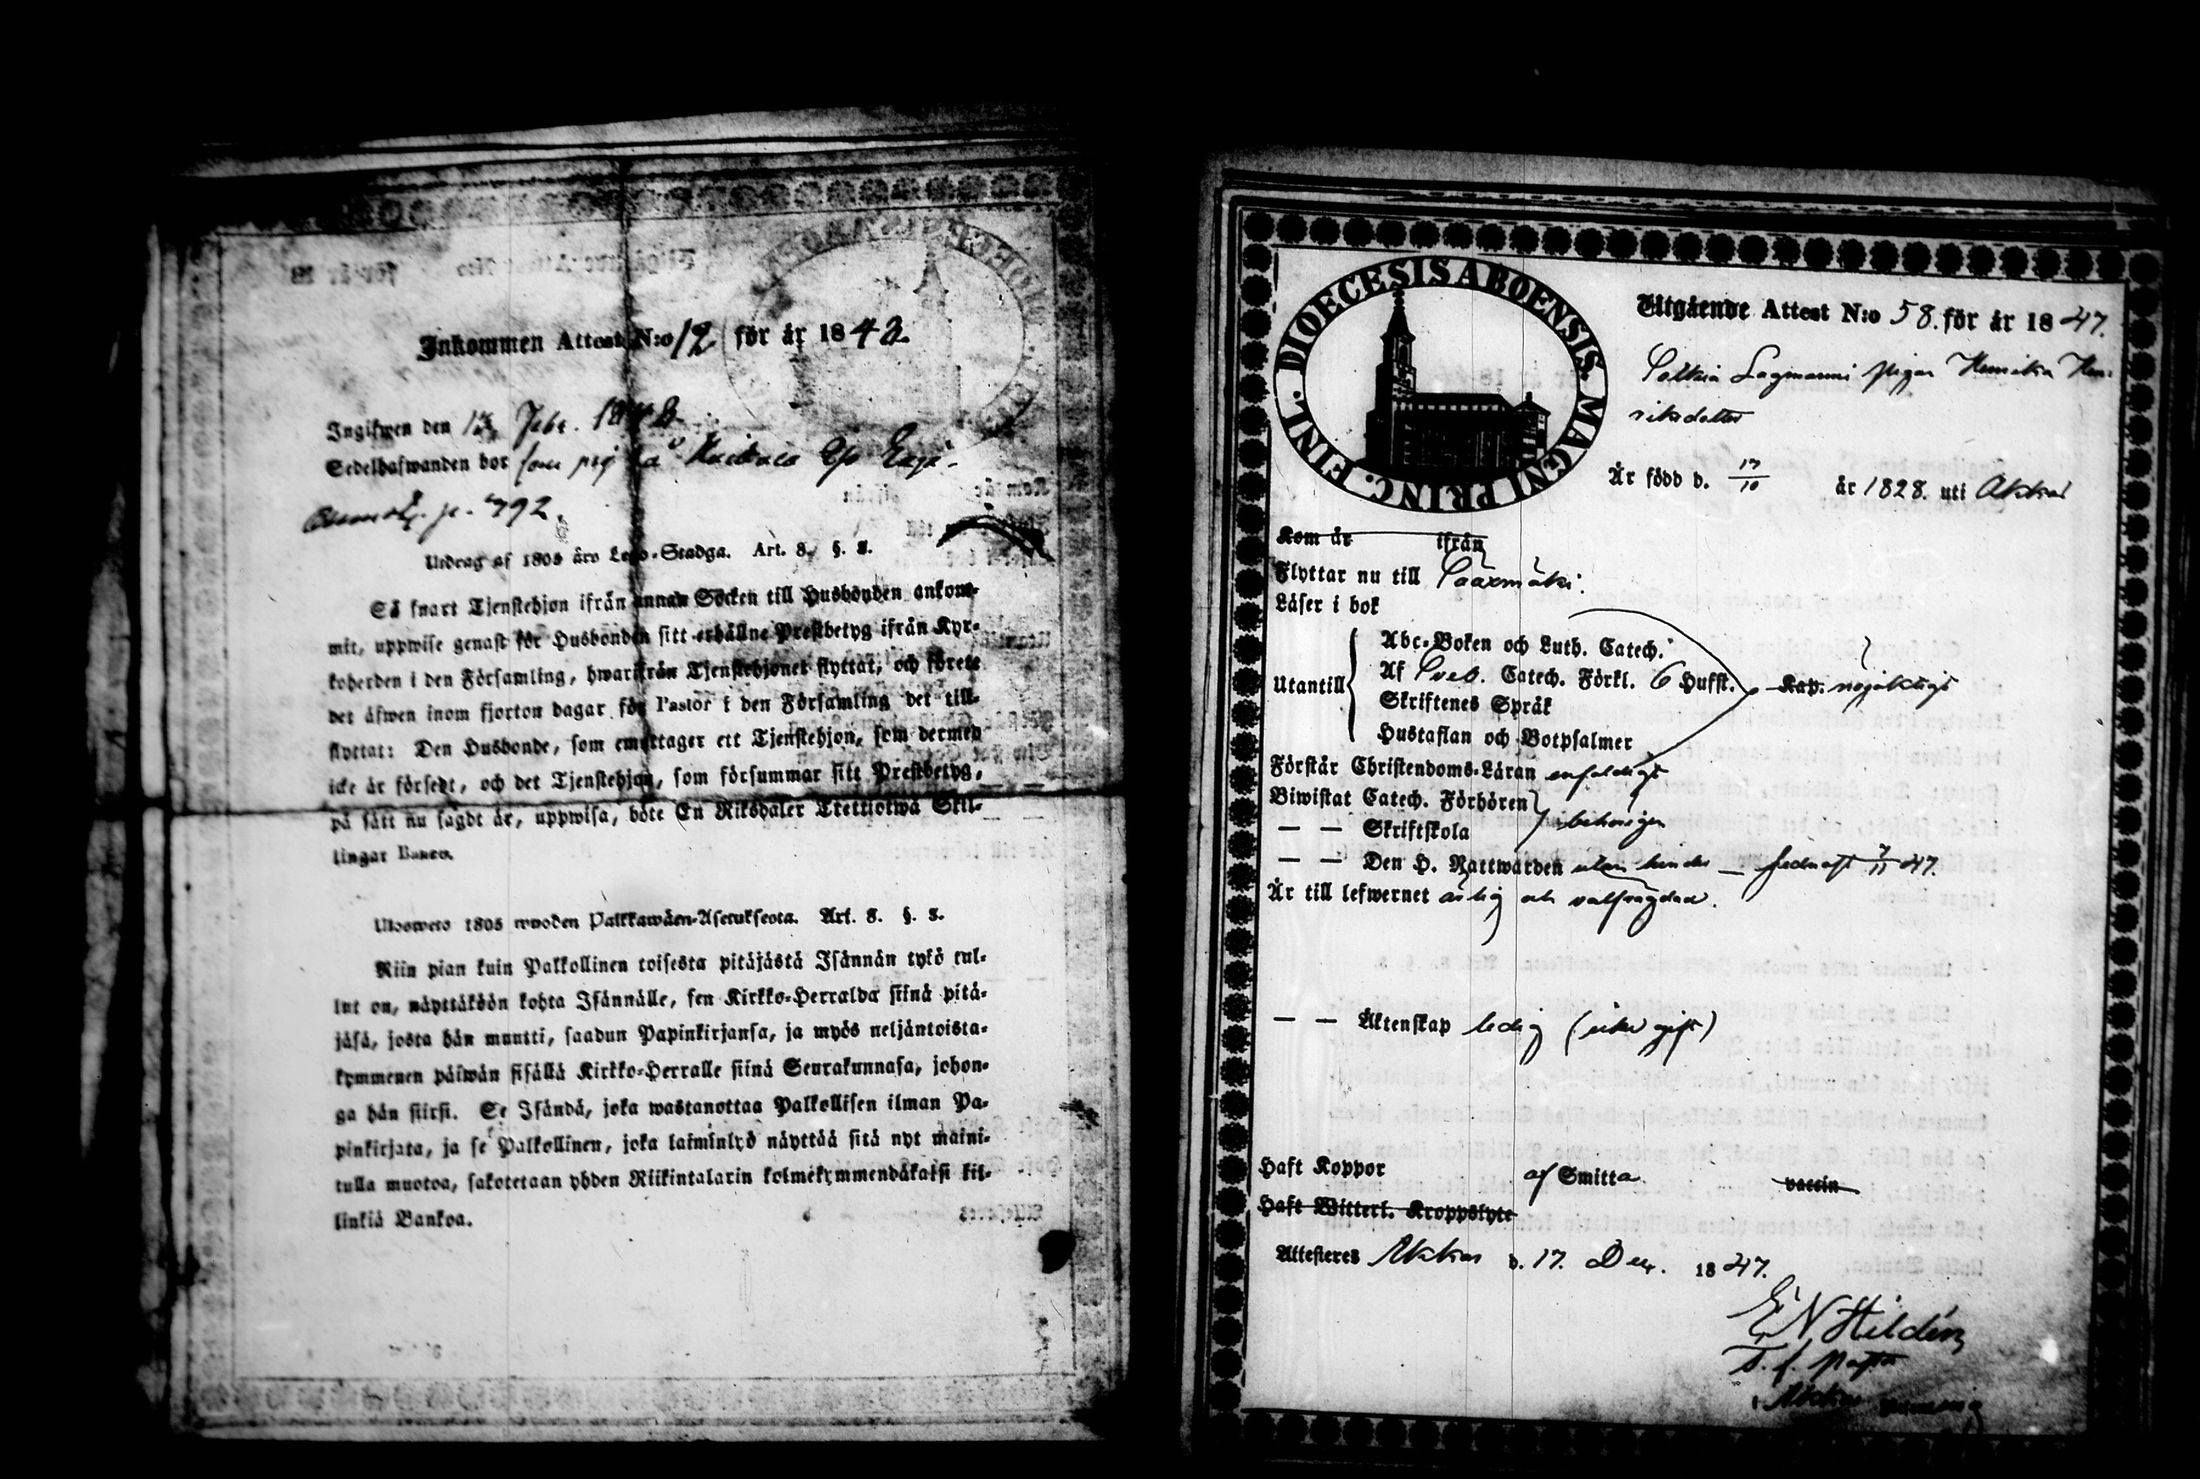 Inkommen Attest N:o 12 för år 1842
Ingifwen den Febr. 18
Sedelhafwanden bor
p. 792.
Utdrag af 1805 års Lego-Stadga. Art. 8. §. 3.
Så snart Tjenstehjon ifrån annan Socken till Husbonden ankom-
mit, uppwise genast för Husbonden sitt erhållne Prestbetyg ifrån Kyr-
koherden i den Församling, hwarifrån Tjenstehjonet flyttat, och förete
det äfwen inom fjorton dagar för Pastor i den Församling det till-
flyttat: Den Husbonde, som emottager ett Tjenstehjon, som dermed
icke är försedt, och det Tjenstehjon, som försummar sitt Prestbetyg,
på sätt nu sagdt är, uppwisa, böte En Riksdaler Trettiotwå Skil-
lingar Banco.
Ulosweto 1805 wuoden Palkkawäen-Asetuksesta. Art. 8. §. 3.
Niin pian kuin Palkollinen toisesta pitäjästä Isännän tykö tul-
lut on, näyttäköön kohta Isännälle, sen Kirkko-Herralda siinä pitä-
jäsä, josta hän muutti, saadun Papinkirjansa, ja myös neljäntoista-
kymmenen päiwän sisällä Kirkko-Herralle siinä Seurakunnasa, johon-
ga hän siirsi. Se Isändä, joka wastanottaa Palkollisen ilman Pa-
pinkirjata, ja se Palkollinen, joka laiminlyö näyttää sitä nyt maini-
tulla muotoa, sakotetaan yhden Riikintalarin kolmekymmendäkaksi kil-
linkiä Bankoa.
DIOECESIS ABOENSIS. MAGNI PRINC. FINL.
Utgående Attest N:o 58. för år 1847.
Lagmanni pigan Henrika Hen-
riksdotter
Är född d. 17/10 år 1828. uti Akkas
Kom år ifrån
Flyttar nu till Sääxmäki.
Läser i bok
Abc-Boken och Luth. Catech.
Utantill Af Sveb. Catech. Förkl. 6 Hufst. Kap. nöjaktigt
Skriftenes Språk
Hustaflan och Botpsalmer
Förstår Christendoms-Läran enfaldigt
Biwistat Catech. Förhören
— — Skriftskola behörigen
— — Den H. Nattwarden utan hinder — sednast 7/11 47.
Är till lefwernet ärlig och välfrägdad.
— — Äktenskap ledig (icke gift)
Haft Koppor af Smitta vaccin
Haft Witterl. Kroppslyte
Attesteres Akkas d. 17. Dec. 1847.
E N Hildén
T. f. Pastor
i Akkas